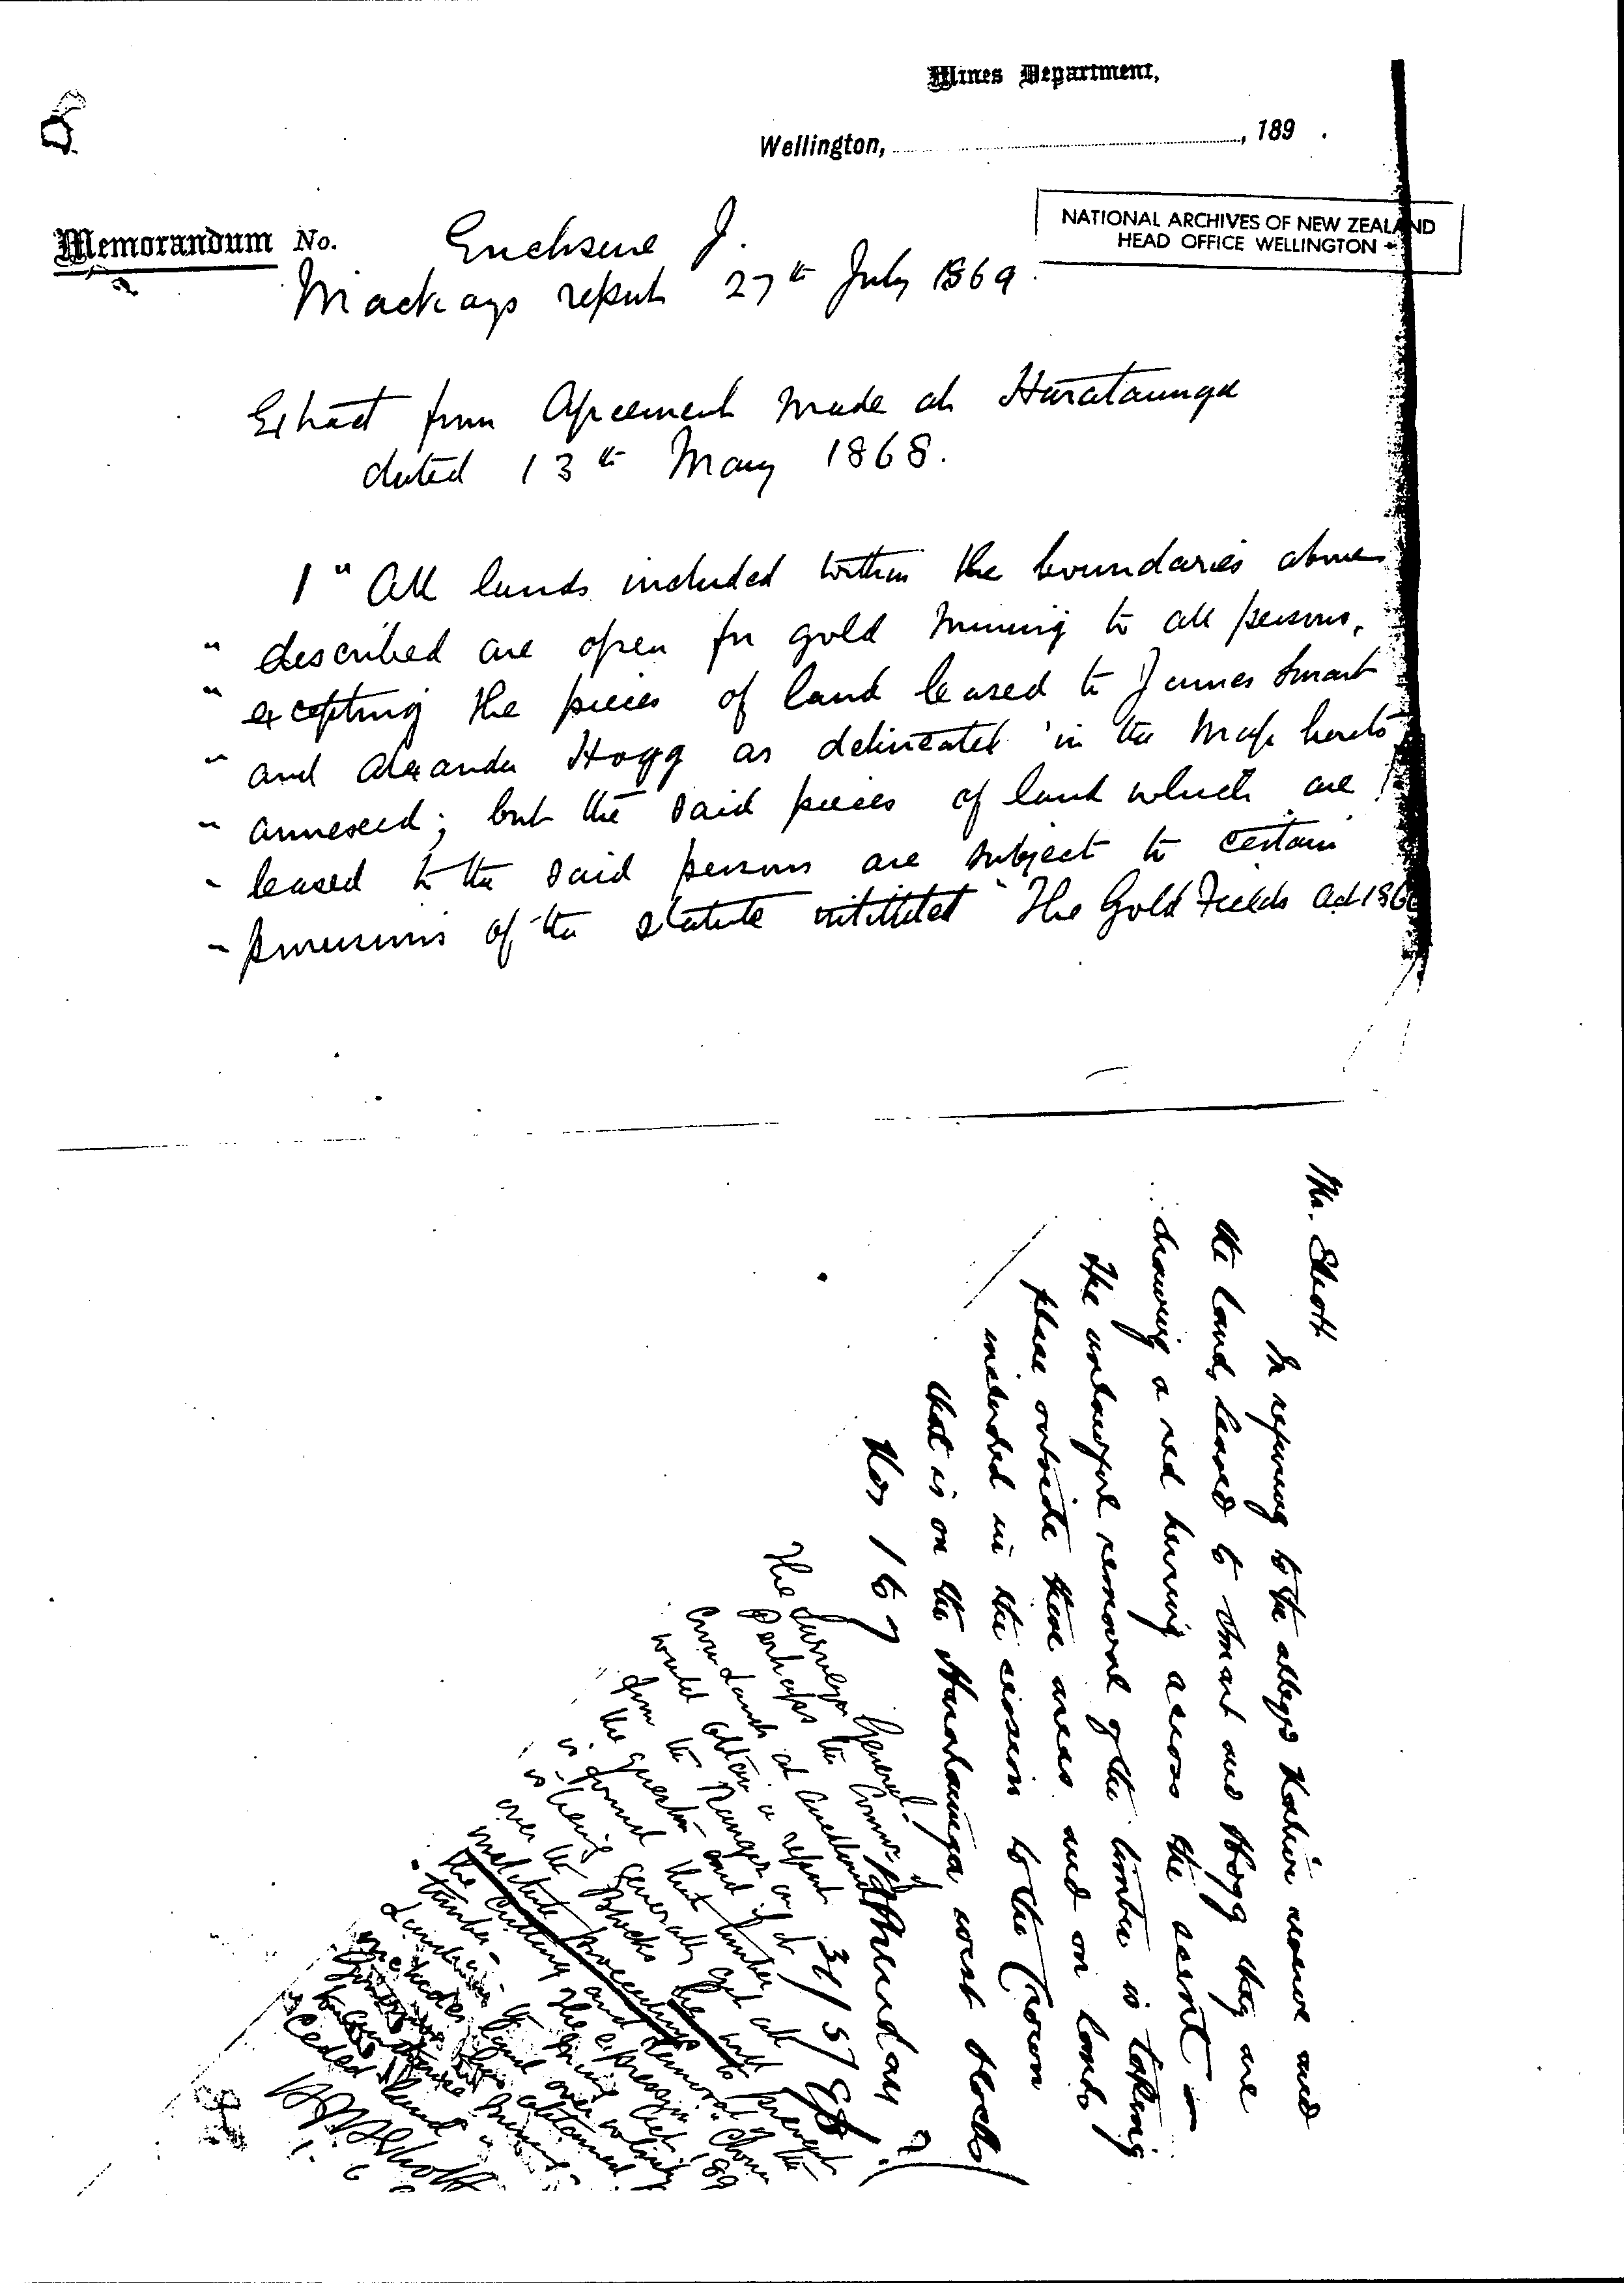 Mines Department,
Wellington, , 189 .
NATIONAL ARCHIVES OF NEW ZEALAND
HEAD OFFICE WELLINGTON
Memorandum No.
Enclosure J.
Mackays report 27th July 1869.
Extract from Agreement made at Harataunga
dated 13th May 1868.
1 " All lands included within the boundaries above
" described are open for gold mining to all persons,
" excepting the pieces of land leased to James Smart
" and Alexander Hogg as delineated in the map hereto
" annexed; but the said pieces of land which are
" leased to the said persons are subject to certain
" provisions of the statute intituled "The Gold Fields Act 186
Mr. Elliott
In referring to the alleged Kauri reserve and
the lands leased to Smart and Hogg they are
drawing a red herring across the scent in
the unlawful removal of the timber is taking
place outside these areas and on lands
included in the cession to the Crown
that is on the Harataunga West block
31/5/98
The Surveyor General.
Perhaps the Commr of
Crown Lands at Auckland
would obtain a report
from the Ranger on
the question and if it
is found that timber
is being generally cut all
over the Blocks he will
institute proceedings to prevent
the cutting and removal of the
timber. The expression "Crown
Lands" in the Mining Act, 189
includes land over which
ceded land
HJHElliott
1. 6